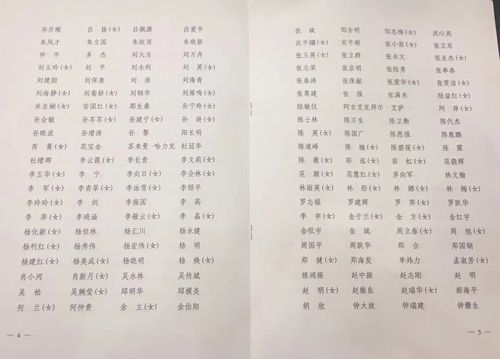 毕开顺 吕 扬(女) 吕佩源 吕爱平
朱凤才 朱立国 朱依谆 朱晓新
仲 平 多 杰 刘大为 刘万丹
刘玉玲(女) 刘 平 刘永利 刘 英(女)
刘建勋 刘保奎 刘 浩 刘海青
刘海静(女) 刘菊娇(女) 刘铜华 刘雁鸣(女)
米亚娴(女) 安国红(女) 郑生燊 孙宁玲(女)
孙会敏 孙苓苓(女) 孙建宁(女) 孙 逊(女)
孙晓波 孙增涛 孙 黎 阳长明
芮 菁(女) 花宝金 苏来曼·哈力克 杜冠华
杜增辉 李云霞(女) 李长贵 李文莉(女)
李玉华(女) 李 宁 李向日(女) 李会林(女)
李 军(女) 李青翠(女) 李泳雪(女) 李绍平
李玲玲(女) 李 剑 李振国 李 高
李 萍(女) 李琦涵 李敬云(女) 李 晶(女)
杨化新(女) 杨世林 杨汇川 杨永健
杨利红(女) 杨秀伟 杨宏伟(女) 杨 明
杨建红(女) 杨美成(女) 杨晓明 杨 焕(女)
肖小河 肖新月(女) 吴永林 吴传斌
吴 松 吴婉莹(女) 邱明华 邱模炎
何 兰(女) 何仲贵 余 立(女) 余伯阳
— 4 —
狄 斌 邹全明 邹忠梅(女) 沈心亮
沈平孃(女) 宋平顺 张小茜(女) 张卫东
张玉英(女) 张立群 张永文 张亚杰(女)
张志荣 张启明 张陆勇 张奉春
张春涛 张保献 张爱华(女) 张雯洁(女)
张尊建 张 强 张满来 陆益红(女)
陆敏仪 阿吉艾克拜尔·艾萨 阿 萍(女)
陈士林 陈万生 陈卫衡 陈代杰
陈 英(女) 陈国广 陈恩强 陈惠鹏
陈道峰 陈 楠(女) 陈碧莲(女) 陈 震
陈 薇(女) 邵 泓(女) 苗 虹(女) 范骁辉
范 颖(女) 范慧红(女) 茅向军 林文翰
林丽英(女) 林 彤(女) 林 娜(女) 林 梅(女)
罗志福 罗建辉 罗 萍(女) 罗跃华
季 申(女) 金于兰(女) 金 方(女) 金红宇
金征宇 金 斌 周立春(女) 周 旭(女)
周国平 周跃华 郑 台 郑国钢
郑 健(女) 郑海发 单炜力 孟淑芳(女)
练鸿振 赵中振 赵志刚 赵 明
赵 明 赵维良 赵瑞华(女) 郝海平
胡 欣 钟大放 钟瑞建 钟赣生
— 5 —